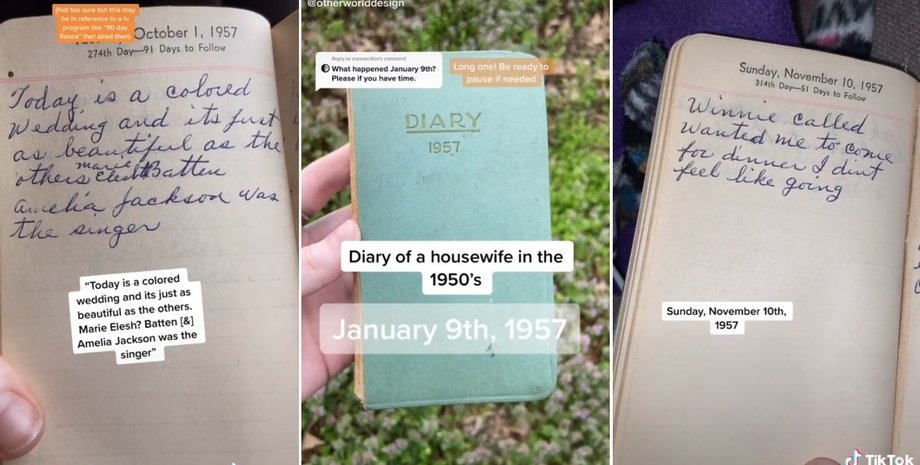 (Not too sure but this may
be in reference to a tv
program like "90 day
fiance" that aired then)
October 1, 1957
274th Day—91 Days to Follow
Today is a colored
wedding and its just
as beautiful as the
others marie Batten
amelia Jackson was
the singer
"Today is a colored
wedding and its just as
beautiful as the others.
Marie Elesh? Batten [&]
Amelia Jackson was the
singer"
@otherworlddesign
What happened January 9th?
Please if you have time.
Long one! Be ready to
pause if needed
DIARY
1957
Diary of a housewife in the
1950's
January 9th, 1957
Sunday, November 10, 1957
314th Day—51 Days to Follow
Winnie called
wanted me to come
for dinner I dint
feel like going
Sunday, November 10th,
1957
TikTok